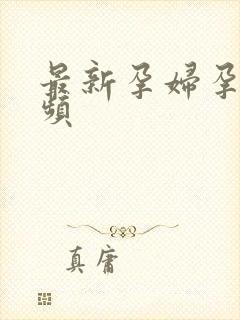 最新孕婦孕
頻
真庸